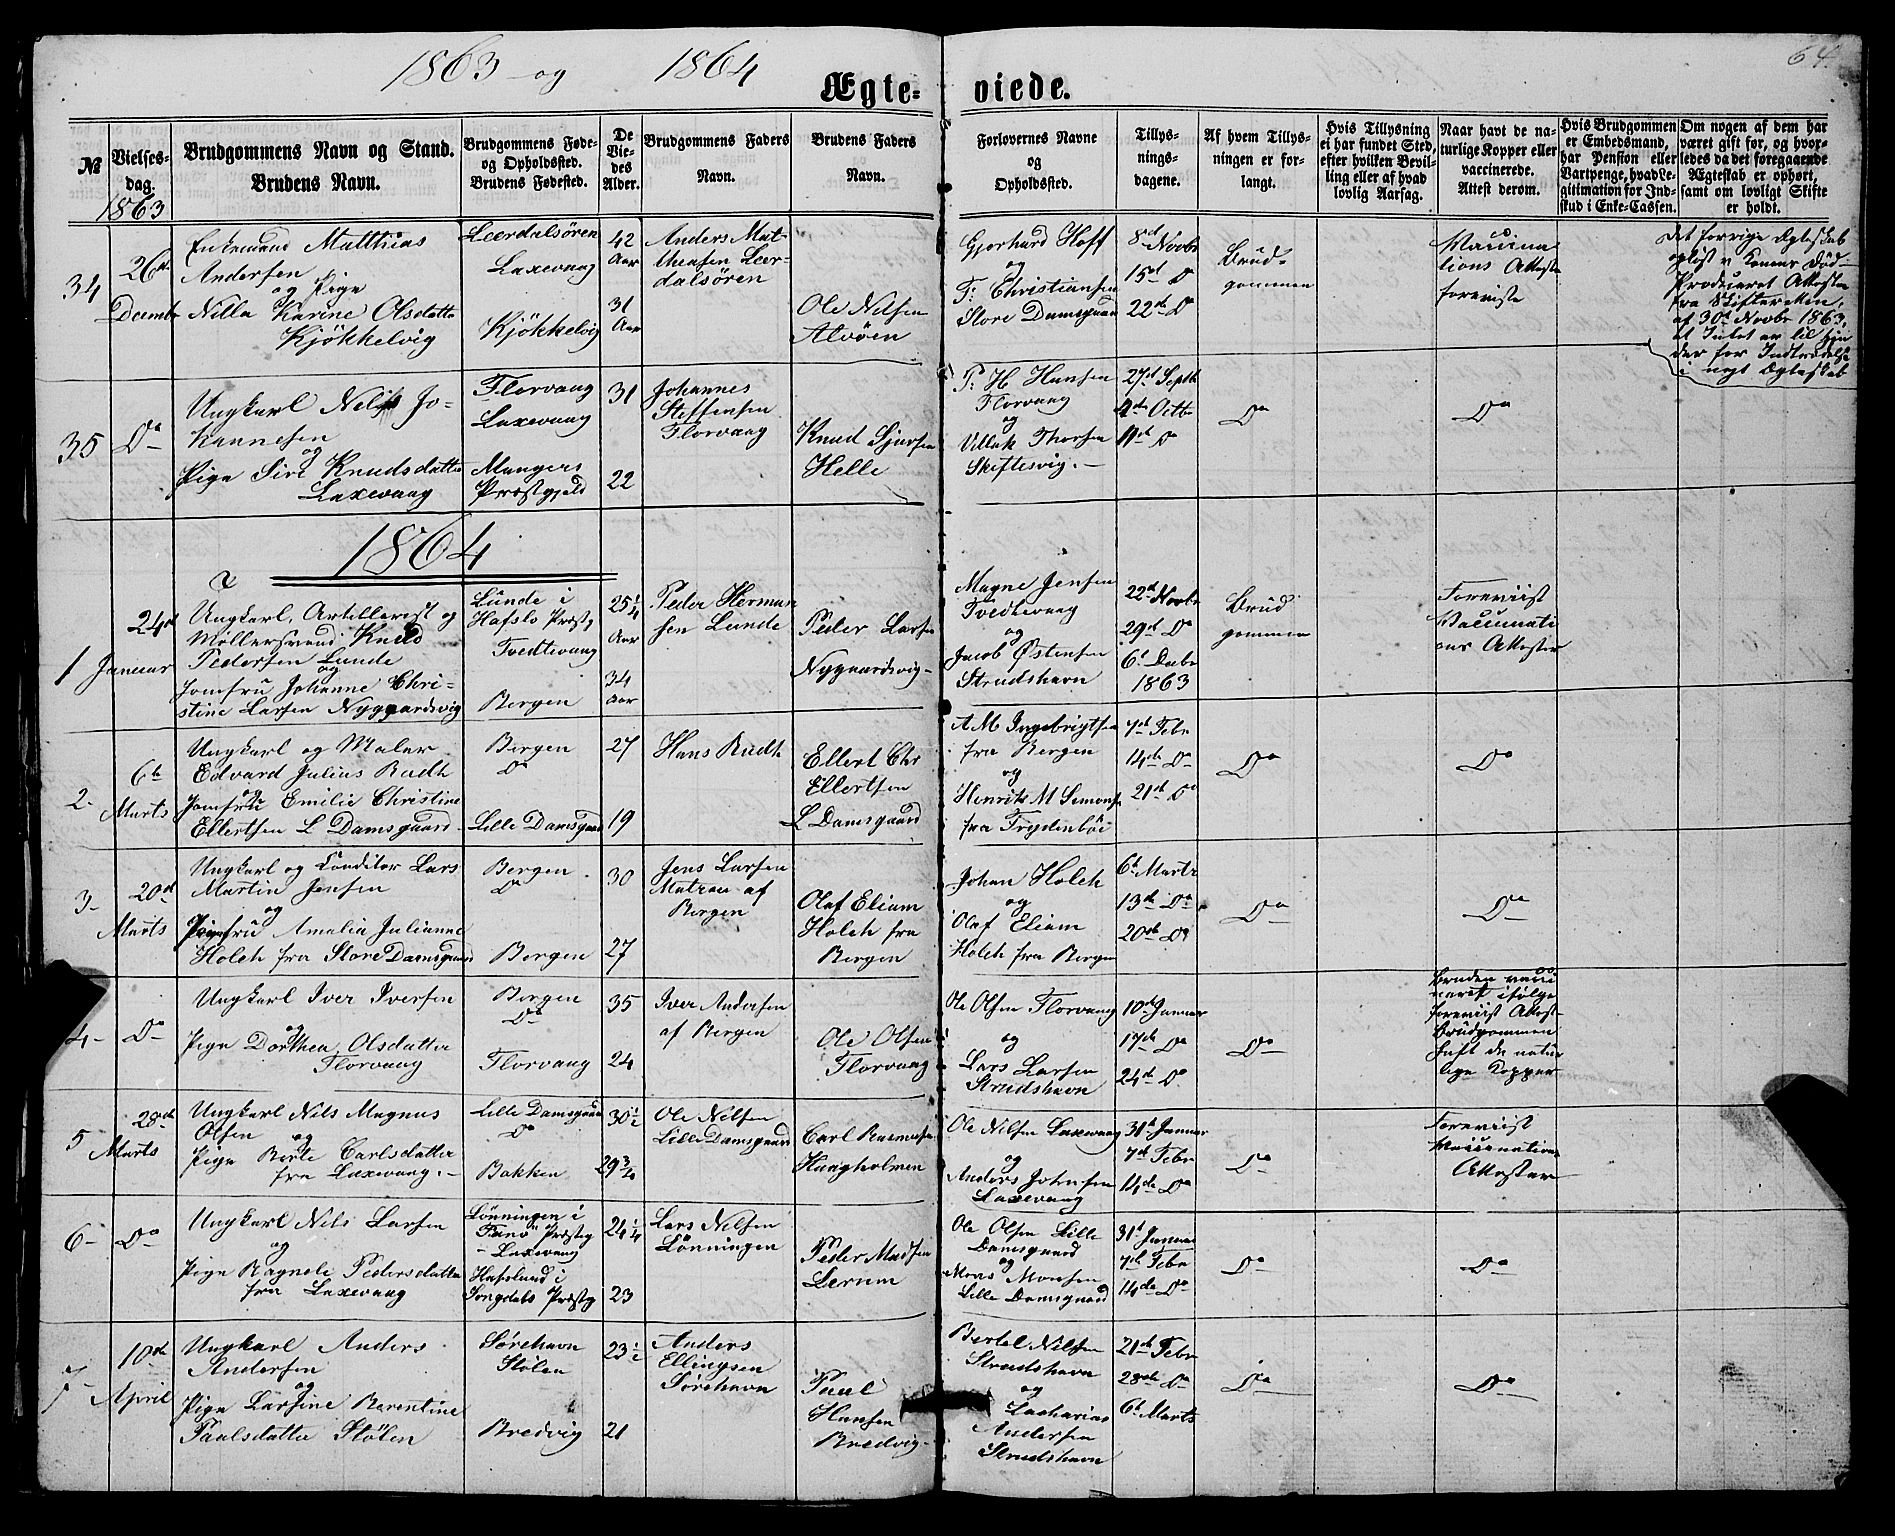 1863 og 1864
64.
Ægteviede.
№
Vielsesdag.
1863
Brudgommens Navn og Stand.
Brudens Navn.
Brudgommens Føde- og Opholdssted.
Brudens Fødested.
De Viedes Alder.
Brudgommens Faders Navn.
Brudens Faders Navn.
Forlovernes Navne og Opholdsted.
Tillysningsdagene.
Af hvem Tillysningen er forlangt.
Hvis Tillysning ei har fundet Sted, efter hvilken Bevilling eller af hvad lovlig Aarsag.
Naar havt de naturlige Kopper eller vaccinerede. Attest derom.
Hvis Brudgommen er Embedsmand, har Pension eller Vartpenge, hvad Legitimation for Indskud i Enke-Cassen.
Om nogen af dem har været gift før, og hvorledes da det foregaaende Ægteskab er ophørt, samt om lovligt Skifte er holdt.
34
26de Decembr
Enkemand Matthias
Andersen
og Pige
Nilla Karine Olsdatter
Kjökkelvig
Leerdalsören
Laxevaag
Kjökkelvig
42 Aar
31 Aar
Anders Mat-
thensen Leer-
dalsören
Ole Nilsen
Alvöen
Gjerhard Hoff
og
F: Christiansen
Store Damsgaard
8de Novbr
15de Do
22de Do
Brud-
gommen
Vaccina-
tions Attester
foreviste
Det forrige Ægteskab
opløst v Konens Død
Produceret Attester
fra Skifteretten,
af 30te Novbr 1863,
at Intet er til Hin-
der for Indtrædelse
i nyt Ægteskab
35
Do
Ungkarl Nels Jo-
hannesen
og
Pige Siri Knudsdatter
Laxevaag
Florvaag
Laxevaag
Mangers
Præstgjeld
31
22
Johannes
Steffensen
Florvaag
Knud Sjursen
Helle
P: H Hansen
Florvaag
og
Villak Thorsen
Skiftesvig.
27de Septbr
4de Octbr
11de Do
Do
Do
1864
1
24de Januar
Ungkarl, Artillerist og
Møllersvend Knud
Pedersen Lunde
og
Jomfru Johanne Chri-
stine Larsen Nygaardsvig
Lunde i
Hafslo Præstg
Tvedtevaag
Bergen
25 1/4 Aar
34 Aar
Peder Herman-
sen Lunde
Peder Larsen
Nygaardsvig
Magne Jensen
Tvedtevaag
og
Jacob Østensen
Strudshavn
22de Novbr
29de Do
6te Decbr
1863
Brud
gommen
Foreviist
Vaccinati-
ons Attester
2
6te Marts
Ungkarl og Maler
Edvard Julius Rudh
og
Jomfru Emilie Christine
Ellertsen L Damsgaard
Bergen
Do
Lille Damsgaard
27
19
Hans Rudh
Ellert Chr
Ellertsen
L Damsgaard
A M Ingebrigtsen
fra Bergen
og
Henrik M Simonsen
fra Frydenböe
7de Febr
14de Do
21de Do
Do
Do
3
20de Marts
Ungkarl og Conditor Lars
Martin Jensen
og
Jomfru Amalia Julianne
Holch fra Store Damsgaard
Bergen
Do
Bergen
30
27
Jens Larsen
Matros af
Bergen
Olaf Eliam
Holch fra
Bergen
Johan Holch
og
Olaf Eliam
Holch fra Bergen
6te Marts
13de Do
20de Do
Do
Do
4
Do
Ungkarl Iver Iversen
og
Pige Dorthea Olsdatter
Florvaag
Bergen
Do
Florvaag
35
24
Iver Andersen
af Bergen
Ole Olsen
Florvaag
Ole Olsen Florvaag
og
Lars Larsen
Strudshavn
10de Januar
17de Do
24de Do
Do
Bruden vacci
neret ifölge
foreviist Attest
Brudgommen
haft de natur
lige Kopper
5
28de Marts
Ungkarl Nils Magnus
Olsen
og
Pige Berte Carlsdatter
fra Laxevaag.
Lille Damsgaard
Do
Bakken
30 1/2
29 3/4
Ole Nilsen
Lille Damsgaard
Carl Rasmussen
Haugholmen
Ole Nilsen Laxevaag
og
Anders Johnsen
Laxevaag
31te Januar
7de Febr
14de Do
Do
Foreviist
Vaccinations
Attester
6
Do
Ungkarl Nils Larsen
og
Pige Ragnele Pedersdatter
fra Laxevaag
Lönningen i
Fanö Præstg
Laxevaag
Hafslund i
Songdals Præstg
24 1/4
23
Lars Nilsen
Lönningen
Peder Madsen
Lerum
Ole Olsen Lille
Damsgaard
og
Mons Monsen
Lille Damsgaard
31te Januar
7de Febr
14de Do
Do
Do
7
10de April
Ungkarl Anders
Andersen
og
Pige Larsine Berentine
Paulsdatter Stölen
Sörehavn
Stölen
Bredvig
23 1/2
21
Anders
Ellingsen
Sörehavn
Paul
Hansen
Bredvig
Bertel Nilsen
Strudshavn
og
Zacharias
Andersen
Strudshavn
21de Febr
28de Do
6te Marts
Do
Do